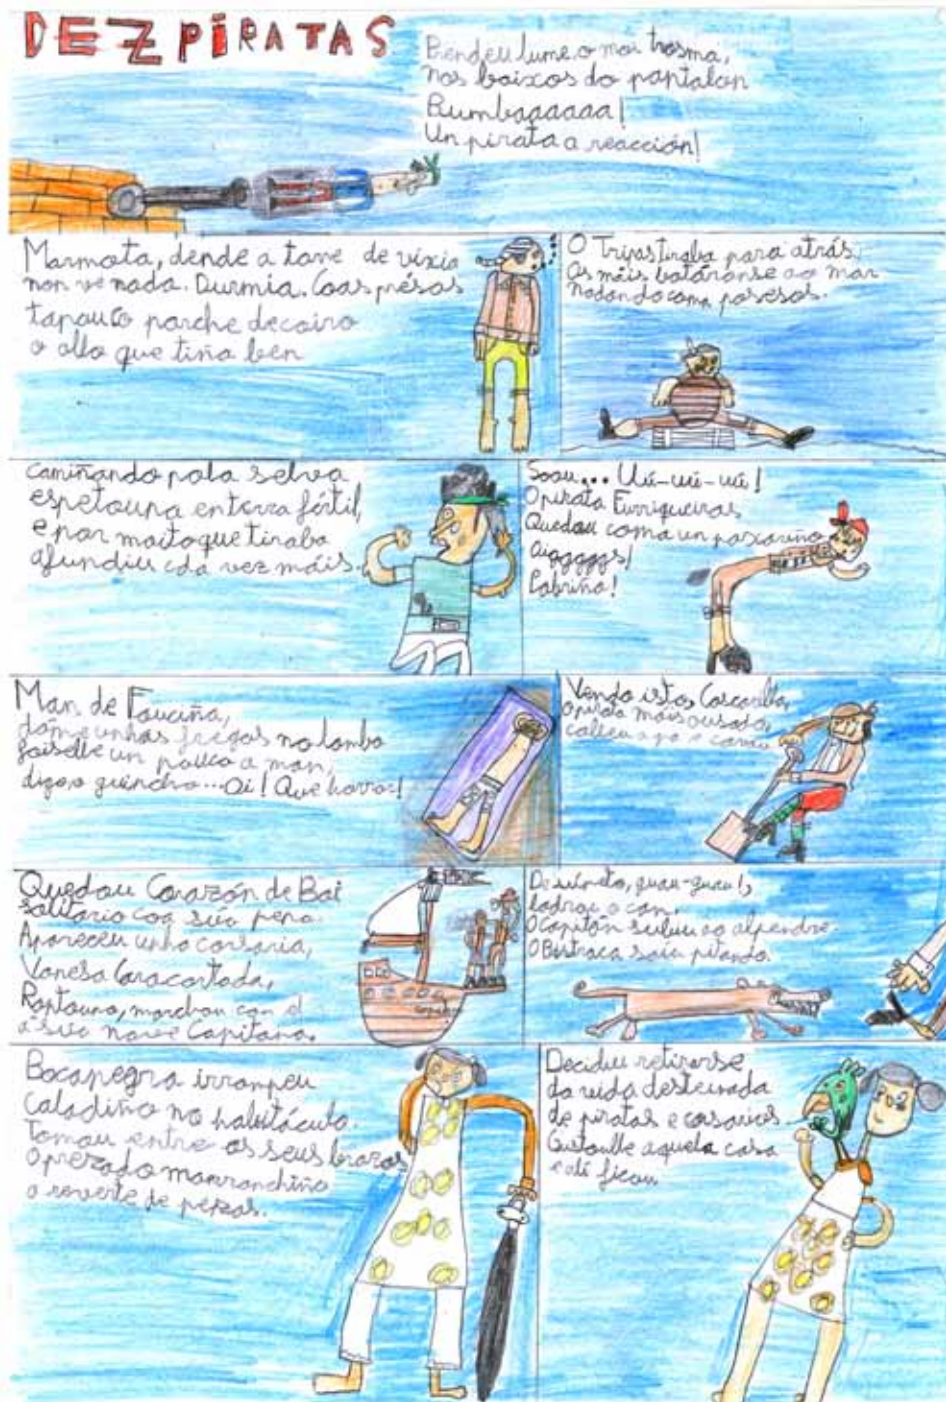 DEZ PIRATAS
Prendeu lume o mar trosma,
nos baixos do pantalon
Bumbaaaaaa!
Un pirata a reacción!
Marmota, dende a torre de vixia
non ve nada. Durmia. Coas présas
tapou co parche de coiro
o ollo que tiña ben
O Tripas tiraba para atrás.
Os máis botáronse ao mar
nadando coma posesos.
camiñando pola selva
espetouna en terra fértil,
e por moito que tiraba
afundiu cda vez máis.
Soou... Uú-uú-uú!
O pirata Furrigueiras
Quedou coma un paxariño
Aigggggs!
Pobriño!
Man de Fouciña,
dome unhas fregas no lombo
faiselle un pouco a man,
digo, o guincho... Ai! Que horror!
Vendo isto,
o pirata máis ousado,
Quedou Corazón de Boi
solitario coa súa pena.
Apareceu unha corsaria,
Vanesa Caracortada,
Raptouno, marchou con el
a súa nave Capitana.
De súpeto, guau-guau!,
ladrou o can.
O Capitán subiu ao alpendre.
O Bistraca saíu pitando.
Bocanegra irrompeu
caladiño no habitáculo.
Tomou entre os seus brazos
o prezado marranchiño
o reverte de pezas.
Decidiu retirarse
da vida desleirada
de piratas e corsarios
Gustoulle aquela casa
e alí ficou